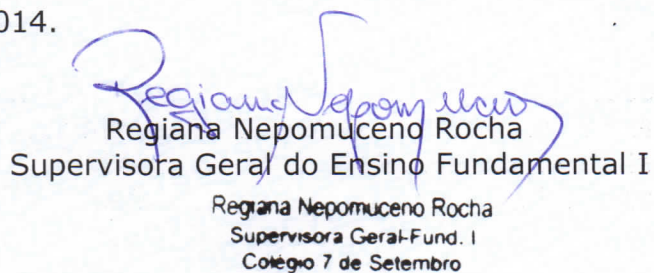 014.
Regiana Nepomuceno
Regiana Nepomuceno Rocha
Supervisora Geral do Ensino Fundamental I
Regiana Nepomuceno Rocha
Supervisora Geral-Fund. I
Colégio 7 de Setembro